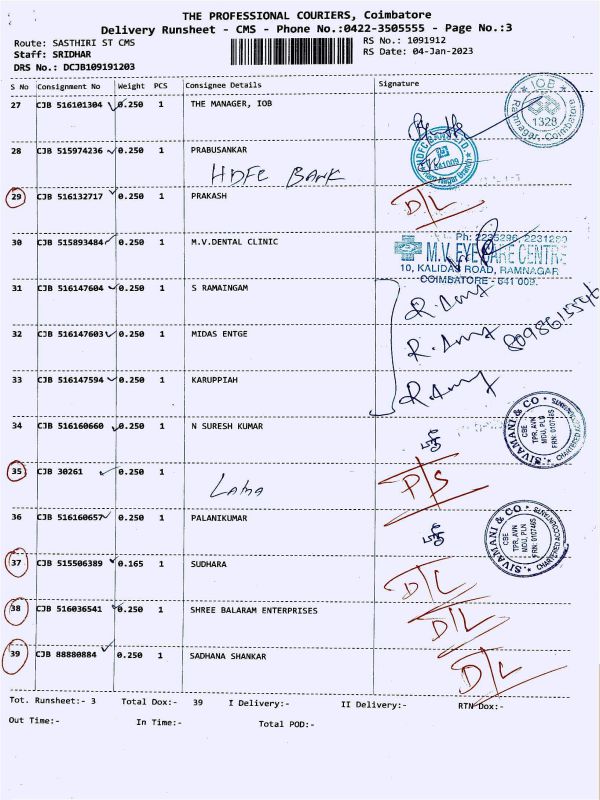 THE PROFESSIONAL COURIERS, Coimbatore
Delivery Runsheet - CMS - Phone No.:0422-3505555 - Page No.:3
Route: SASTHIRI ST CMS
Staff: SRIDHAR
DRS No.: DCJB109191203
RS No.: 1091912
RS Date: 04-Jan-2023
S No Consignment No Weight PCS Consignee Details Signature
27 CJB 516101304 0.250 1 THE MANAGER, IOB
IOB
1328
Ramnagar, Coimbatore
28 CJB 515974236 0.250 1 PRABUSANKAR
HDFC BANK
641009
29 CJB 516132717 0.250 1 PRAKASH D/L
30 CJB 515893484 0.250 1 M.V.DENTAL CLINIC
Ph: 2235296, 2231280
M.V. EYE CARE CENTRE
10, KALIDAS ROAD, RAMNAGAR
COIMBATORE - 641 009.
31 CJB 516147604 0.250 1 S RAMAINGAM
32 CJB 516147603 0.250 1 MIDAS ENTGE
33 CJB 516147594 0.250 1 KARUPPIAH
34 CJB 516160660 0.250 1 N SURESH KUMAR
SIVAMANI & CO
CHARTERED ACCOUNTANTS
CBE
TPR, AVN
MDU, PLN
FRN: 010748S
35 CJB 30261 0.250 1 P/S
36 CJB 516160657 0.250 1 PALANIKUMAR
SIVAMANI & CO
CHARTERED ACCOUNTANTS
CBE
TPR, AVN
MDU, PLN
FRN: 010748S
37 CJB 515506389 0.165 1 SUDHARA D/L
38 CJB 516036541 0.250 1 SHREE BALARAM ENTERPRISES D/L
39 CJB 88880884 0.250 1 SADHANA SHANKAR D/L
Tot. Runsheet:- 3 Total Dox:- 39 I Delivery:- II Delivery:- RTN Dox:-
Out Time:- In Time:- Total POD:-